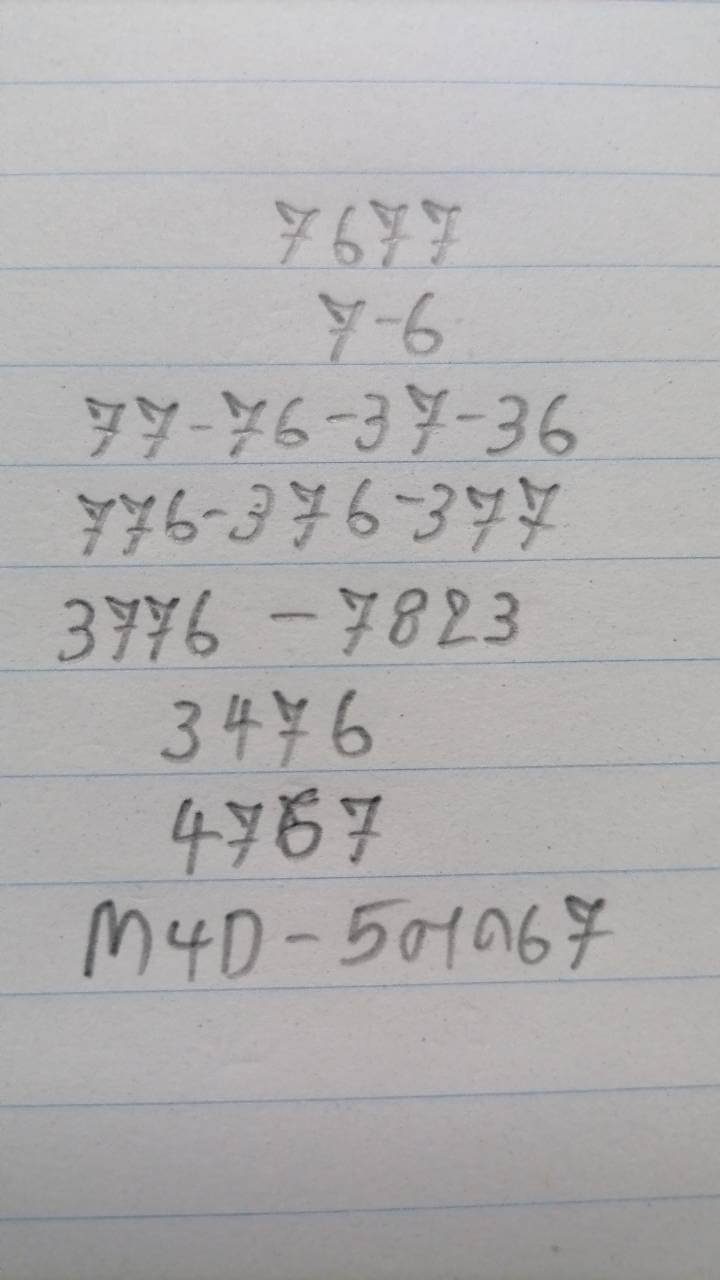 7677
7-6
77-76-37-36
776-376-377
3776 - 7823
3476
4767
M4D-